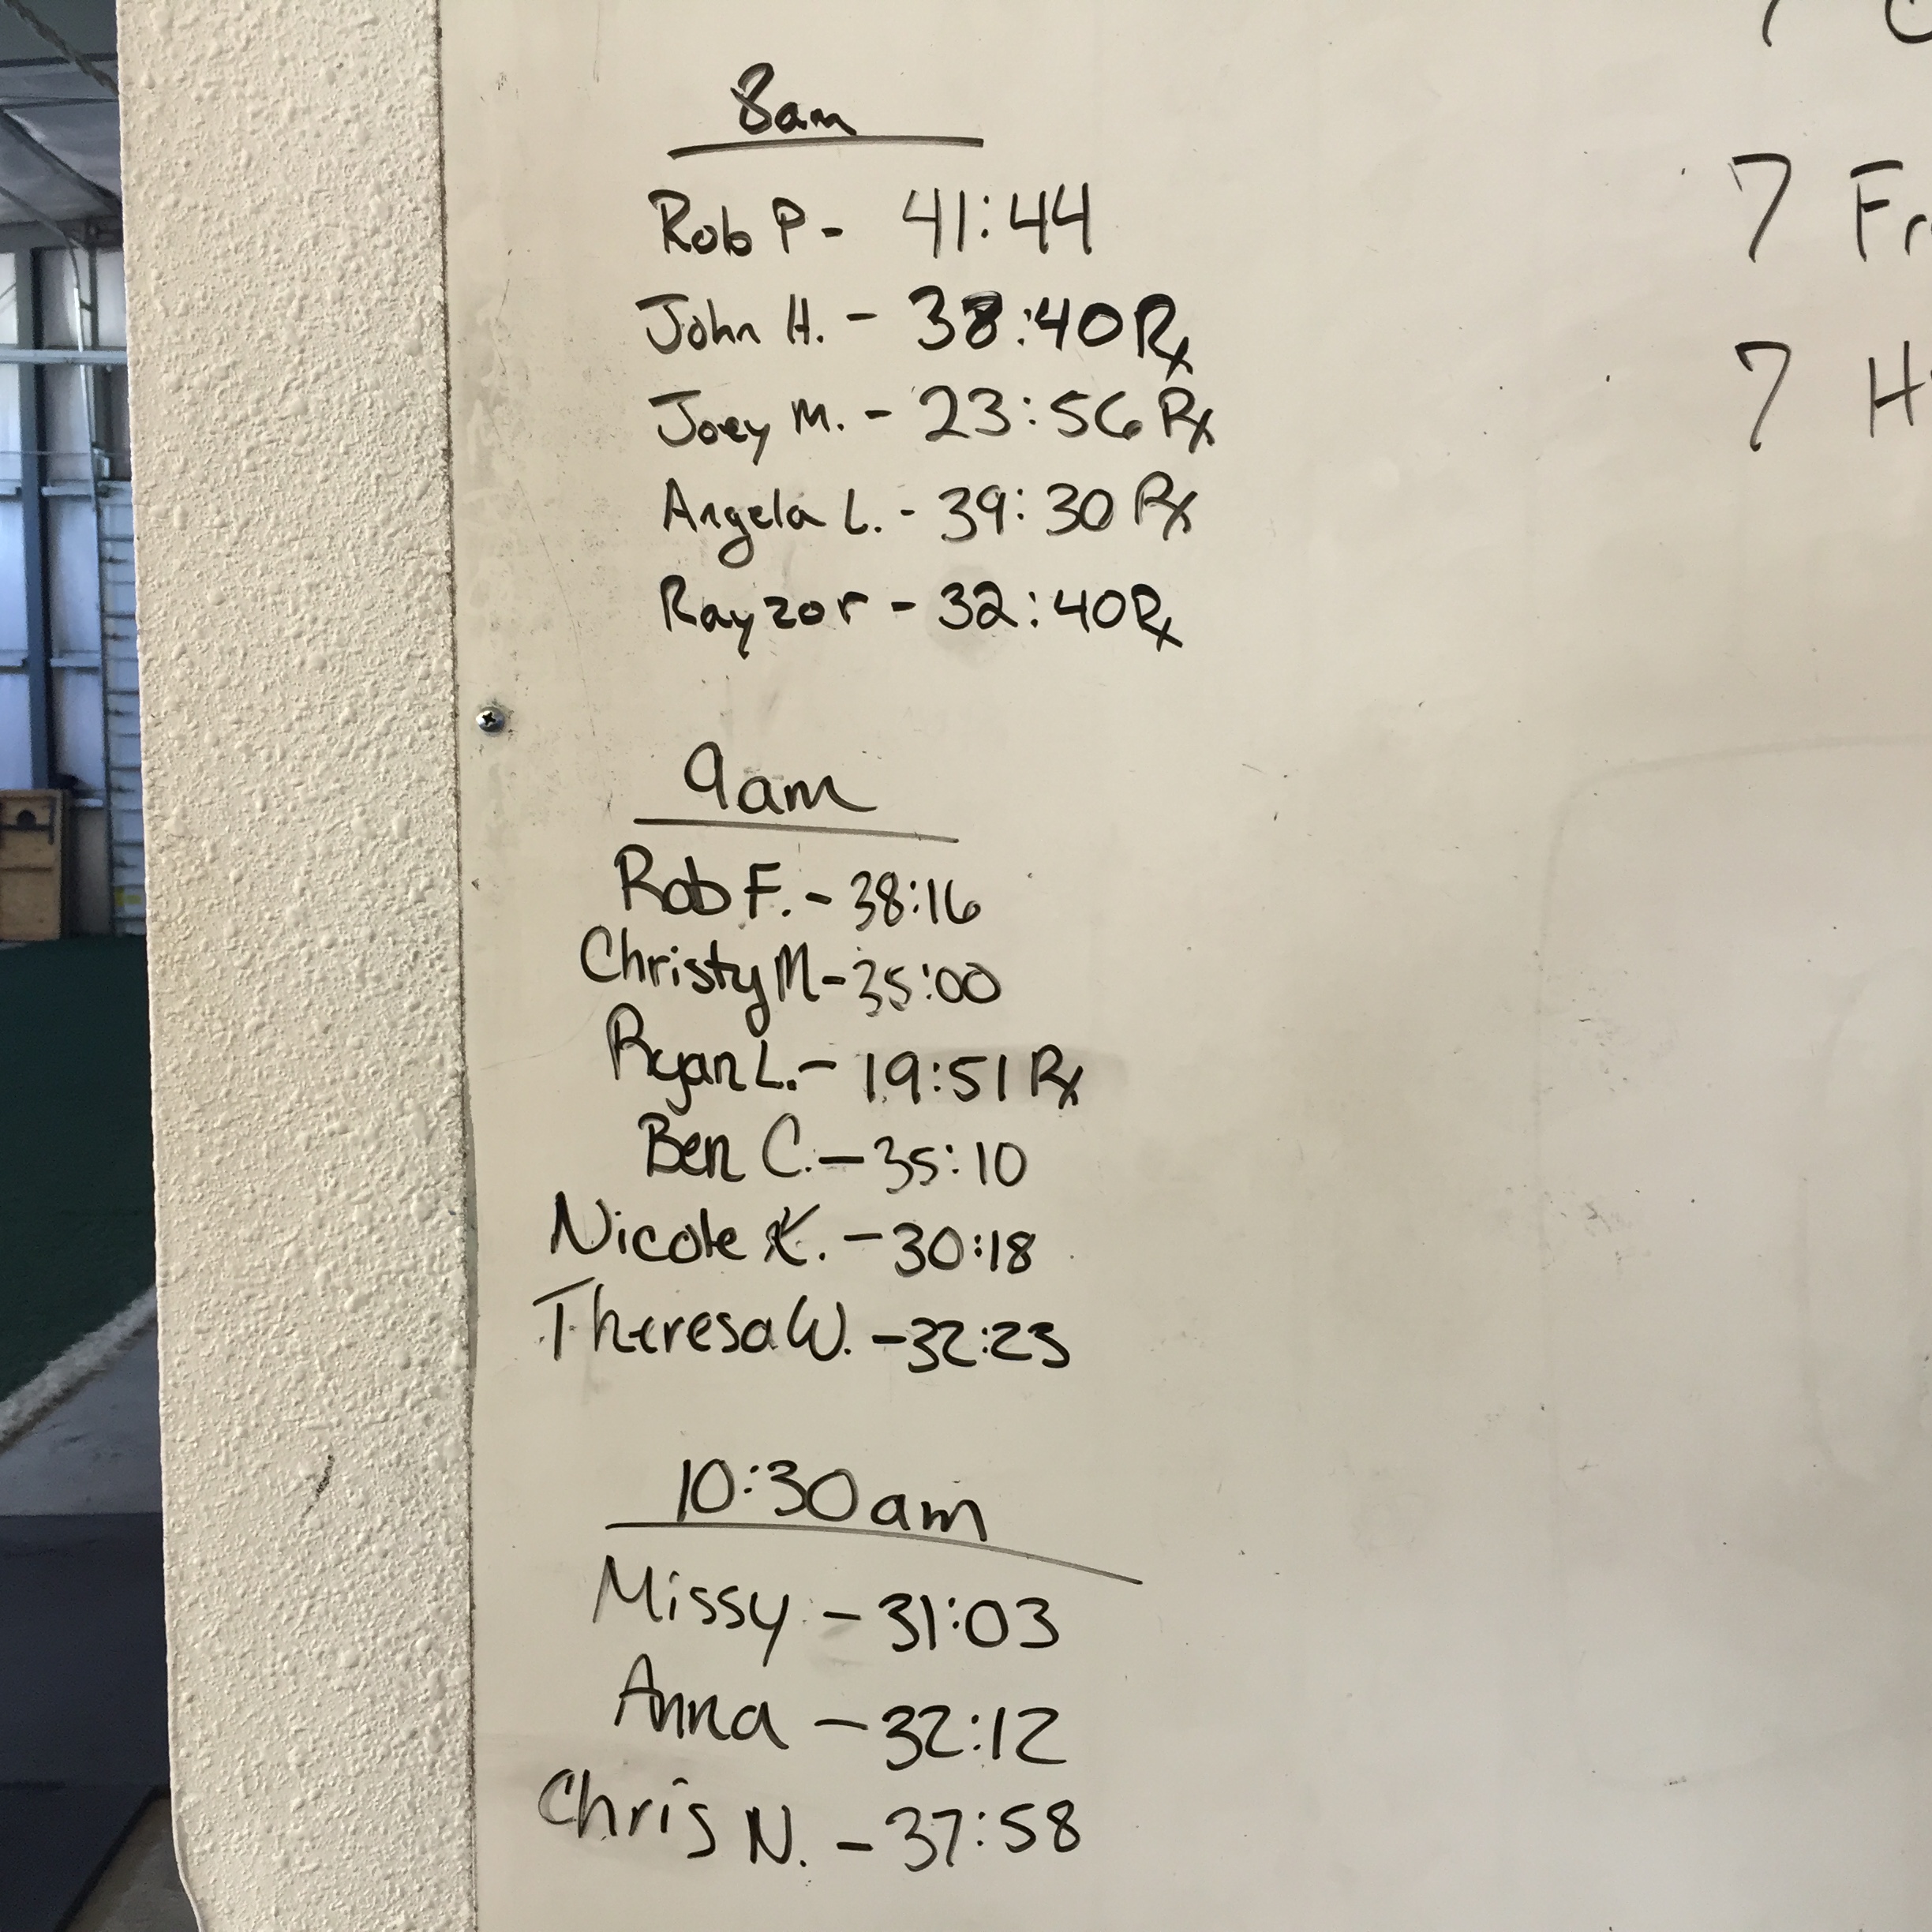 8am
Rob P- 41:44
John H. - 38:40 Rx
Joey M. - 23:56 Rx
Angela L. - 39:30 Rx
Rayzor - 32:40 Rx
9am
Rob F. - 38:16
Christy M - 35:00
Ryan L. - 19:51 Rx
Ben C. - 35:10
Nicole K. - 30:18
Theresa W. - 32:23
10:30am
Missy - 31:03
Anna - 32:12
Chris N. - 37:58
7
7 Fr
7 H